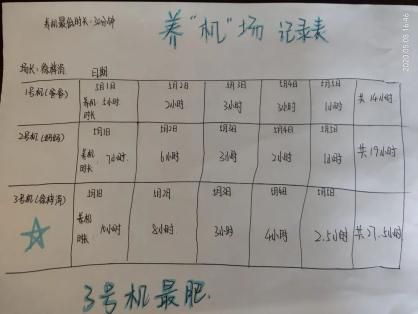 养机最低时长:30分钟
养"机"场 记录表
场长:徐梓涛 日期
1号机(爸爸) 5月1日 5月2日 5月3日 5月4日 5月5日
养机时长 5小时 2小时 3小时 3小时 1小时 共14小时
2号机(妈妈) 5月1日 5月2日 5月3日 5月4日 5月5日
养机时长 7小时 6小时 3小时 2小时 1小时 共19小时
3号机(徐梓涛) 5月1日 5月2日 5月3日 5月4日 5月5日
养机时长 10小时 8小时 3小时 4小时 2.5小时 共27.5小时
3号机最肥.
2020.05.05 16:46